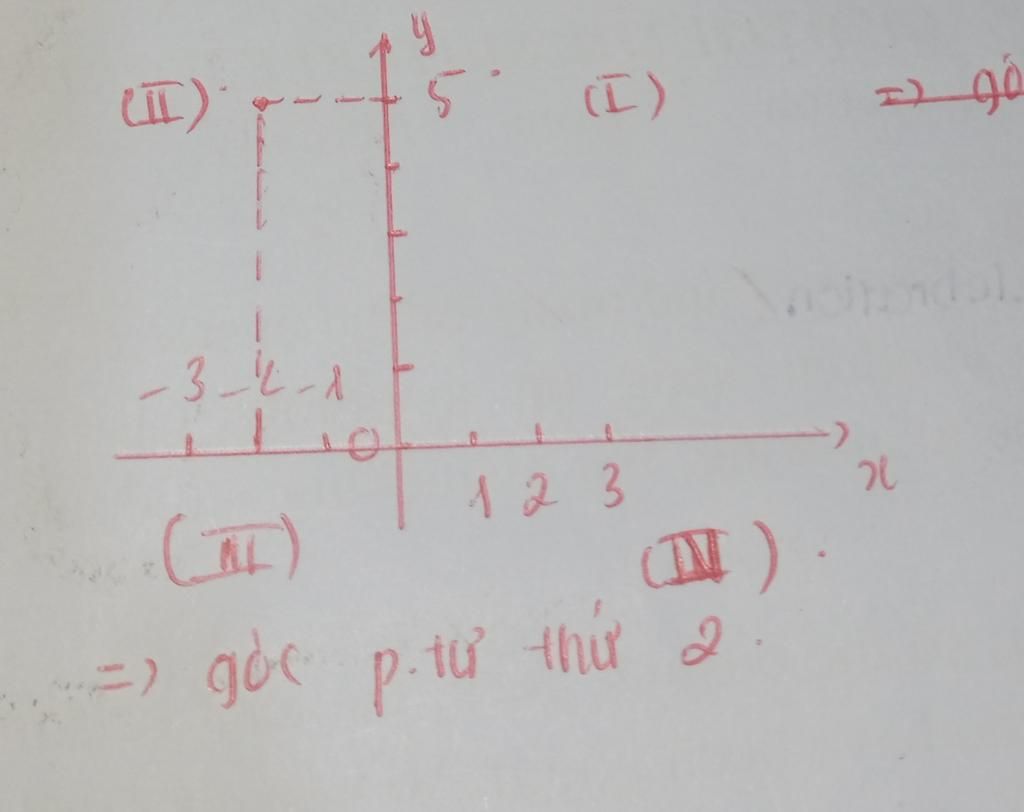 y
(II) 5 (I) =>
-3 -2 -1
O
1 2 3 x
(III) (IV)
=> góc p. tư thứ 2.